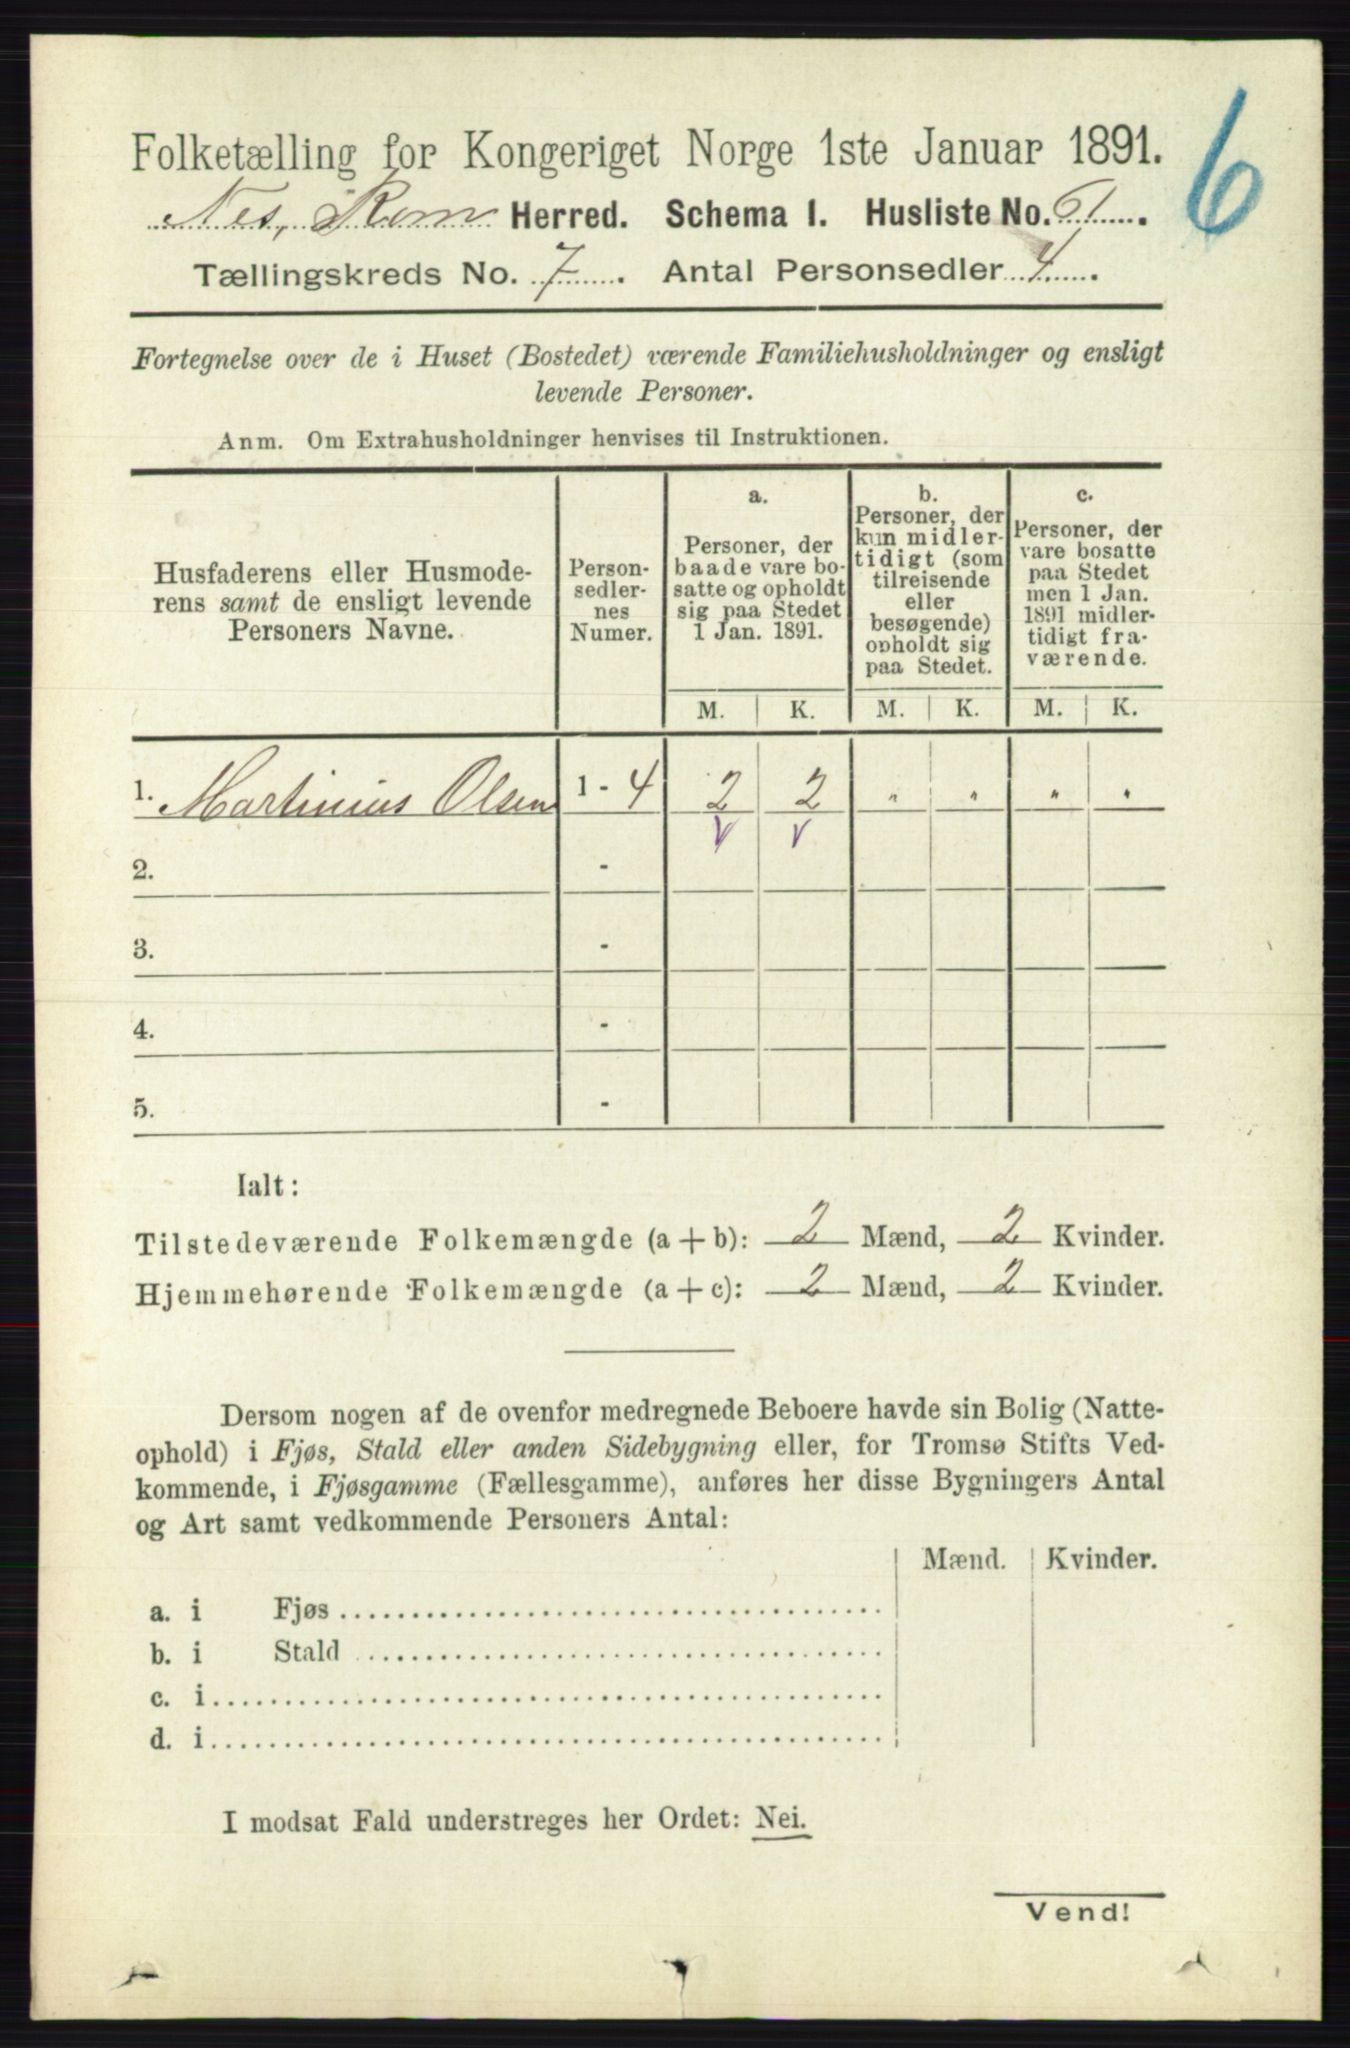 6
Folketælling for Kongeriget Norge 1ste Januar 1891.
Nes, Rom Herred. Schema I. Husliste No. 61.
Tællingskreds No. 7. Antal Personsedler 4.
Fortegnelse over de i Huset (Bostedet) værende Familiehusholdninger og ensligt
levende Personer.
Anm. Om Extrahusholdninger henvises til Instruktionen.
Husfaderens eller Husmode-
rens samt de ensligt levende
Personers Navne.
Person-
sedler-
nes
Numer.
a.
Personer, der
baade vare bo-
satte og opholdt
sig paa Stedet
1 Jan. 1891.
b.
Personer, der
kun midler-
tidigt (som
tilreisende
eller
besøgende)
opholdt sig
paa Stedet.
c.
Personer, der
vare bosatte
paa Stedet
men 1 Jan.
1891 midler-
tidigt fra-
værende.
M. K. M. K. M. K.
1. Martinius Olsen 1 - 4 2 2 " " " "
v v
2. -
3. -
4. -
5. -
Ialt:
Tilstedeværende Folkemængde (a + b): 2 Mænd, 2 Kvinder.
Hjemmehørende Folkemængde (a + c): 2 Mænd, 2 Kvinder.
Dersom nogen af de ovenfor medregnede Beboere havde sin Bolig (Natte-
ophold) i Fjøs, Stald eller anden Sidebygning eller, for Tromsø Stifts Ved-
kommende, i Fjøsgamme (Fællesgamme), anføres her disse Bygningers Antal
og Art samt vedkommende Personers Antal:
Mænd. Kvinder.
a. i Fjøs
b. i Stald
c. i
d. i
I modsat Fald understreges her Ordet: Nei.
Vend!